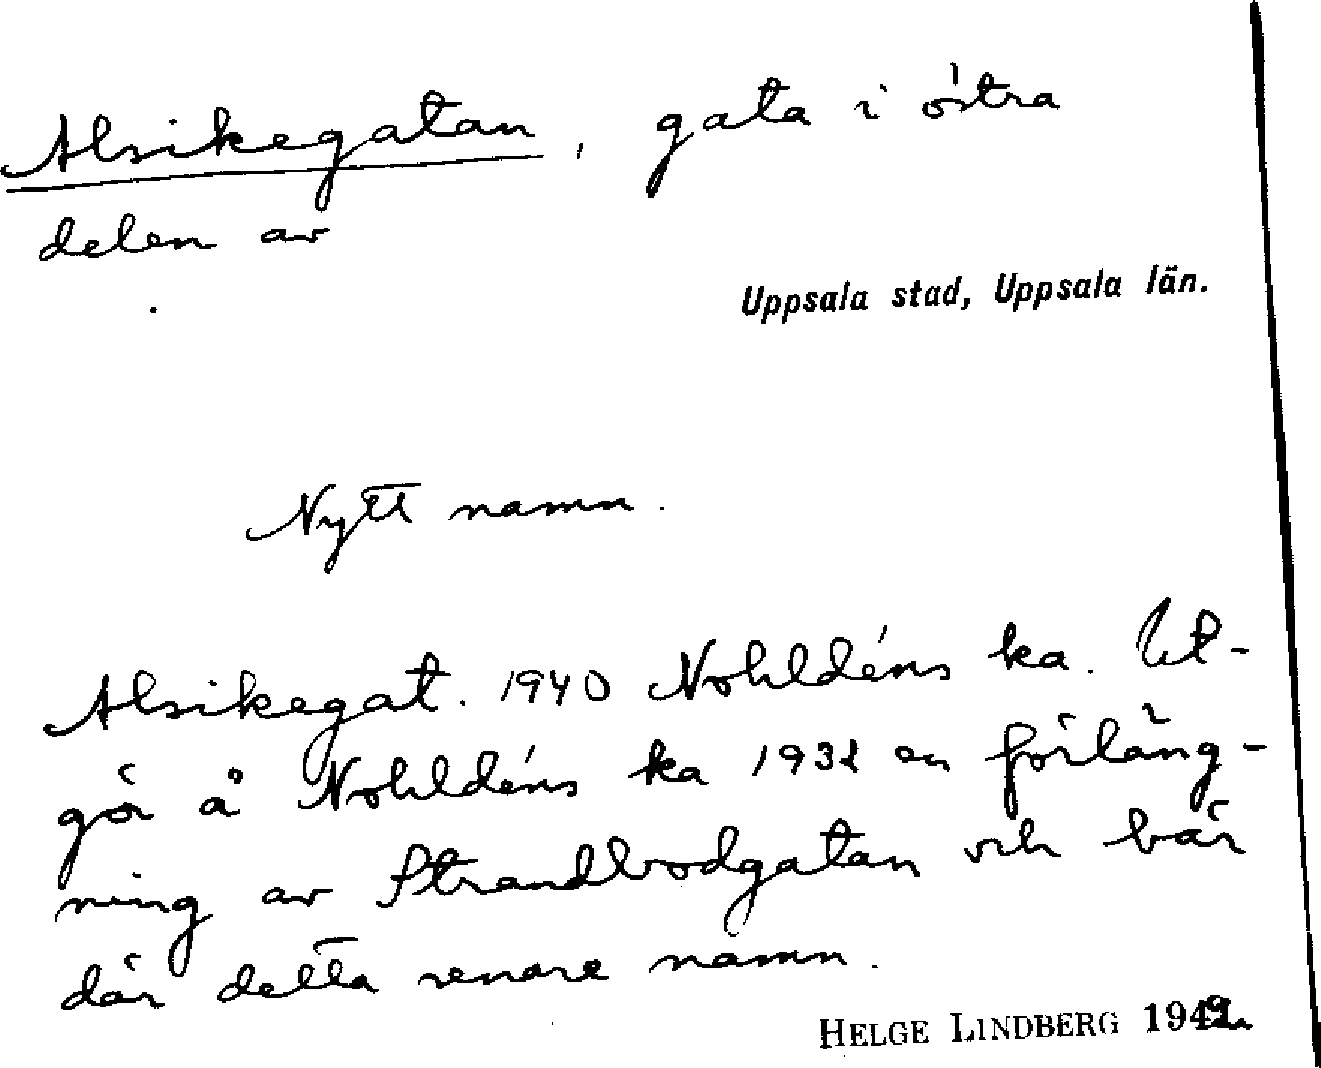 Alsikegatan, gata i östra
delen av
Uppsala stad, Uppsala län.
Nytt namn.
Alsikegat. 1940 Nohldéns ka. Ut-
gör å Nohldéns ka 1932 en förläng-
ning av Strandbodgatan och bär
där detta senare namn.
HELGE LINDBERG 1942